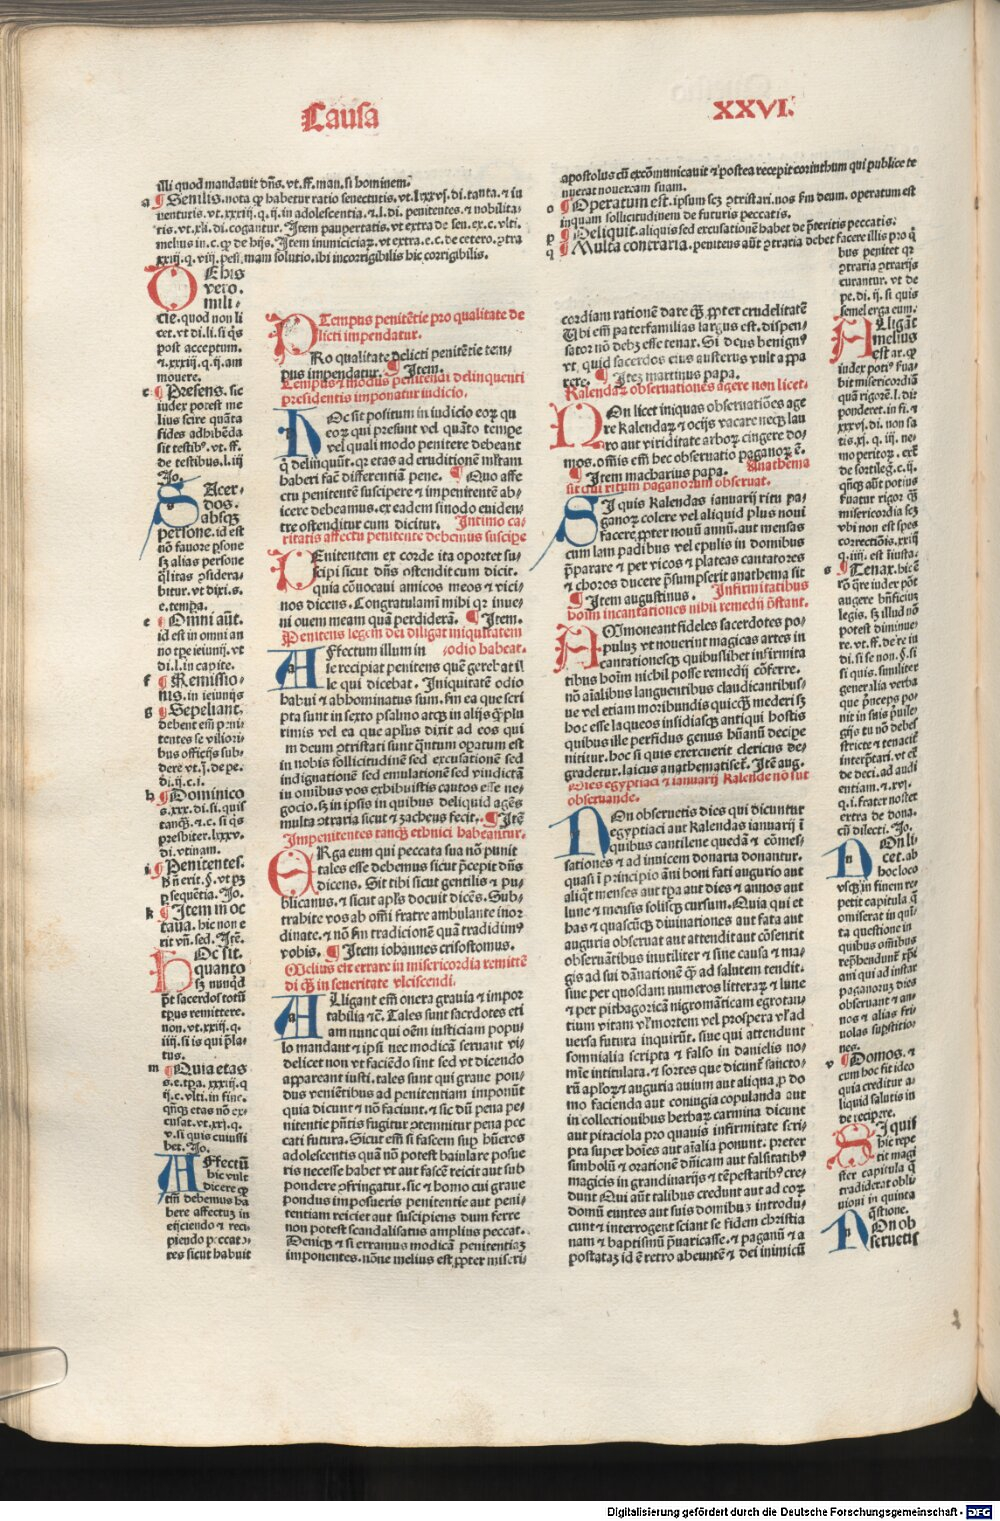 Causa
XXVI.
illi quod mandauit dñs. vt. ff. man. si hominem.
a ¶ Senilis. nota ꝙ habetur ratio senectutis. vt. lxxxvj. di. tanta. ⁊ in
uenturis. vt. xxxiij. q. ij. in adolescentia. ⁊. l. di. penitentes. ⁊ nobilita
tis. vt. xlj. di. cogantur. Item paupertatis. vt extra de sen. ex. c. vlti.
melius in. c. ꝙ de hijs. Item inimiciciaꝝ. vt extra. e. c. de cetero. ꝯtra
xxiij. q. viij. pessimam solutio. ibi incorrigibilis hic corrigibilis.
DE his
vero.
mili-
cie. quod non li
cet. vt di. li. si q̄s
post acceptum.
⁊. xxxiij. q. ij. am
mouere.
c ¶ Presens. sic
iudex potest me
lius scire quāta
fides adhibēda
sit testibꝰ. vt. ff.
de testibus. l. iij
Jo.
SAcer-
dos.
absqꝫ
persone. id est
nō fauore ꝑsone
sꝫ alias persone
q̄litas ꝯsidera-
bitur. vt dixi. s.
e. tempa.
e ¶ Omni aūt.
id est in omni an
no tꝑe ieiunij. vt
di. l. in capite.
f ¶ Remissio-
nis. in ieiunijs
g ¶ Sepeliant.
debent em̄ peni-
tentes se viliori-
bus officijs sub-
dere vt. j. de pe.
di. ij. c. j.
h ¶ Dominico
s. xxx. di. si. quis
tanqꝫ. ⁊. c. si q̄s
presbiter. lxxxv.
di. vtinam.
i ¶ Penitentes.
hꝰ erit. §. vt pꝫ
ꝑ sequētia. Jo.
k ¶ Item in oc
taua. hic non e
rit vn̄. sed. Itē.
HOc sit.
quanto
sꝫ nunqd
pt̄ sacerdos totū
tꝑus remittere.
non. vt. xxiij. q.
iiij. si is qui p̄la-
tus.
m ¶ Quia etas
s. e. tꝑa. xxxiij. q
ij. c. vlti. in fine.
qn̄qꝫ etas nō ex-
cusat. vt. xxj. q.
v. si quis cuiusli
bet. Jo.
AFfectū
hic vult
dicere ꝙ
tm̄ debemus ha
bere affectum in
eijciendo ⁊ reci-
piendo peccato-
res sicut habuit
Tempus penitētie pro qualitate de
licti impendatur.
PRo qualitate delicti penitētie tem-
pus impendatur. ¶ Item.
Tempus ⁊ modus penitendi delinquenti
presidentis imponatur iudicio.
HOc sit positum in iudicio eoꝝ qu
eoꝝ qui presunt vel quāto tempe
vel quali modo penitere debeant
q̄ delinquūt. ꝙ etas ad eruditionem mītam
haberi faē differentiā pene. ¶ Quo affe
ctu penitentē suscipere ⁊ impenitentē ab-
icere debeamus. ex eadem sinodo euiden-
tre ostenditur cum dicitur. Intimo ca-
ritatis affectu penitente debemus suscipe
PEnitentem ex corde ita oportet su-
scipi sicut dn̄s ostendit cum dicit.
quia cōuocaui amicos meos ⁊ vici-
nos dicens. Congratulamī mihi qꝛ inue-
ni ouem meam quā perdiderā. ¶ Item.
Penitens legem dei diligat iniquitatem
odio habeat.
AFfectum illum in
se recipiat penitens quē gerebat il
le qui dicebat. Iniquitatē odio
habui ⁊ abbominatus sum. fm ea que scri
pta sunt in sexto psalmo atqꝫ in alijs q̄ꝫplu
rimis vel ea que apl̄us dixit ad eos qui
in deum ꝯtristati sunt q̄ntum oꝑatum est
in nobis sollicitudinē sed excusationē sed
indignationē sed emulationē sed vindictā
in omnibus vos exhibuistis castos esse ne-
gocio. sꝫ in ipsis in quibus deliquid agēs
multa ꝯtraria sicut ⁊ zacheus fecit. ¶ Itē
Impenitentes tanqꝫ ethnici habeantur.
ERga eum qui peccata sua nō punit
tales esse debemus sicut p̄cepit dn̄s
dicens. Sit tibi sicut gentilis ⁊ pu-
blicanus. ⁊ sicut apl̄s docuit dicēs. Sub-
trahite vos ab om̄i fratre ambulante inor
dinate. ⁊ nō fm tradicionē quā tradidimꝰ
vobis. ¶ Item iohannes crisostomus.
Melius est errare in misericordia remittē
di qꝫ in seueritate vlciscendi.
ALligant em̄ onera grauia ⁊ impor
tabilia ⁊c̄. Tales sunt sacrdotes eti
am nunc qui oēm iusticiam popu-
lo mandant ⁊ ipsi nec modicā seruant vi-
delicet non vt faciēdo sint sed vt dicendo
appareant iusti. tales sunt qui graue pon-
dus veniētibus ad penitentiam imponūt
quia dicunt ⁊ nō faciunt. ⁊ sic dū pena pe-
nitentie pn̄tis fugitur ꝯtemnitur pena pec
cati futura. Sicut em̄ si fascem suꝑ hūeros
adolescentis quā nō potest baiulare posue
ris necesse habet vt aut fascē reicit aut sub
pondere ꝯfringatur. sic ⁊ homo cui graue
pondus imposueris penitentie aut peni-
tentiam reiciet aut suscipiens dum ferre
non potest scandalisatus amplius peccat.
Deniqꝫ ⁊ si erramus modicā penitentiaꝫ
imponentes. nōne melius est ꝓpter miseri-
apostolus cū excōmunicauit ⁊ postea recepit corinthum qui publice te
nuerat nouercam suam.
o ¶ Operatum est. ipsum scꝫ ꝯtristari. nos fm deum. operatum est
inquam sollicitudinem de futuris peccatis.
p ¶ Deliquit. aliquis sed excusationē habet de p̄teritis peccatis.
q ¶ Multa contraria. penitens aūt ꝯtraria debet facere illis pro q̄
bus penitet qꝛ
ꝯtraria ꝯtrarijs
curantur. vt de
pe. di. ij. si quis
semel erga eum.
cordiam rationē dare qꝫ ꝓpter crudelitatē
Vbi em̄ paterfamilias largus est. dispen-
sator nō debꝫ esse tenax. Si deus benignꝰ
vt. quid sacerdos eius austerus vult appa
rere. ¶ Itē martinus papa.
Kalendaꝝ obseruationes agere non licet.
NOn licet iniquas obseruatiōes age
re kalendaꝝ ⁊ ocijs vacare necqꝫ lau
ro aut viriditate arboꝝ cingere do-
mos. om̄is em̄ hec obseruatio paganoꝝ ē.
¶ Item macharius papa. Anathema
sit qui ritum paganorum obseruat.
SI quis kalendas ianuarij ritu pa-
ganoꝝ colere vel aliquid plus noui
facere ꝓpter nouū annū. aut mensas
cum lam padibus vel epulis in domibus
p̄parare ⁊ per vicos ⁊ plateas cantatores
⁊ choros ducere p̄sumpserit anathema sit
¶ Item augustinus. Infirmitatibus
hoīm incantationes nihil remedij p̄stant.
AOmoneant fideles sacerdotes po-
pulꝫ vt nouerint magicas artes in
cantationesqꝫ quibuslibet infirmita
tibus hoīm nichil posse remedij cōferre.
nō aīalibus languentibus claudicantibus-
ue vel etiam moribundis quicqꝫ mederi sꝫ
hoc esse laqueos insidiasqꝫ antiqui hostis
quibus ille perfidus genus hūanū decipe
nititur. hoc si quis exercuerit clericus de-
gradetur. laicus anathematiset. Itē aug.
Dies egyptiaci ⁊ ianuarij kalende nō sūt
obseruande.
NOn obseruetis dies qui dicuntur
egyptiaci aut kalendas ianuarij ī
quibus cantilene quedā ⁊ cōmes-
sationes ⁊ ad inuicem donaria donantur.
quasi ī principio āni boni fati augurio aut
aliqͣt menses aut tꝑa aut dies ⁊ annos aut
lune ⁊ mensis solisqꝫ cursum. Quia qui et
has ⁊ quascūqꝫ diuinationes aut fata aut
auguria obseruat aut attendit aut cōsentit
obseruātibus inutiliter ⁊ sine causa ⁊ ma-
gis ad sui dānationē qꝫ ad salutem tendit.
siue per quosdam numeros litteraꝝ ⁊ lune
⁊ per pithagoricā nigromāticam egrotan-
tium vitam vl̄ mortem vel prospera vl̄ ad
uersa futura inquirūt. siue qui attendunt
somnialia scripta ⁊ falso in danielis no-
mīe intitulata. ⁊ sortes que dicunt̄ sancto-
rū apl̄oꝝ ⁊ auguria auium aut aliqua ꝓ do
mo facienda aut coniugia copulanda aut
in collectionibus herbaꝝ carmina dicunt
aut pitaciola pro quauis infirmitate scri-
pta super hoīes aut aīalia ponunt. preter
simbolū ⁊ orationē dn̄icam aut falsitatibꝰ
magicis in grandinarijs ⁊ tēpestatibꝰ cre-
dunt Qui aūt talibus credunt aut ad eoꝝ
domū euntes aut suis domibus introdu-
cunt ⁊ interrogent sciant se fidem christia
nam ⁊ baptismū p̄uaricasse. ⁊ paganū ⁊ a
postataꝫ id ē retro abeuntē ⁊ dei inimicū
ALligāt
melius
est ar. ꝙ
index potꝰ fua-
bit misericordiā
quā rigorē. l. di.
ponderet. in fi. ⁊
xxxvj. di. non sa
tis. xj. q. iij. ne-
mo peritoꝝ. ext̄
de sortileg. c. ij.
qn̄qꝫ aūt potius
fuatur rigor qꝫ
misericordia scꝫ
vbi non est spes
correctiōis. xxiij
q. iiij. est iiusta.
s ¶ Tenax. hic ē
rō q̄re iudex pōt
augere bn̄ficiuꝫ
legis. sꝫ illud nō
potest diminue-
re. vt. ff. de re iu
di. si se non. §. si
si quis. similiter
generalia verba
que p̄nceps po-
nit in suis p̄uile-
gijs tu nō debes
stricte ⁊ tenacit̄
interp̄tari. vt ext̄
de deci. ad audi
entiam. ⁊. xvj.
q. i. frater noster
extra de dona.
cū dilecti. Jo.
NOn li-
cet. ab
hoc loco
vsqꝫ in finem re-
petit capitula q̄
omiserat in qui-
ta questione in
quibus omibus
rep̄hendunt̄ xp̄i-
ani qui ad instar
paganoꝝ dies
obseruant ⁊ an-
nos ⁊ alias fri-
uolas supstitio-
nes.
v ¶ Domos. ⁊
cum hoc fit ideo
quia creditur a-
liquid salutis in
de recipere.
SI quis
hic repe
tit magi
ster capitula q̄
tradiderat obli
uioni in quinta
q̄stione.
NOn ob
seruetis
Digitalisierung gefördert durch die Deutsche Forschungsgemeinschaft - DFG